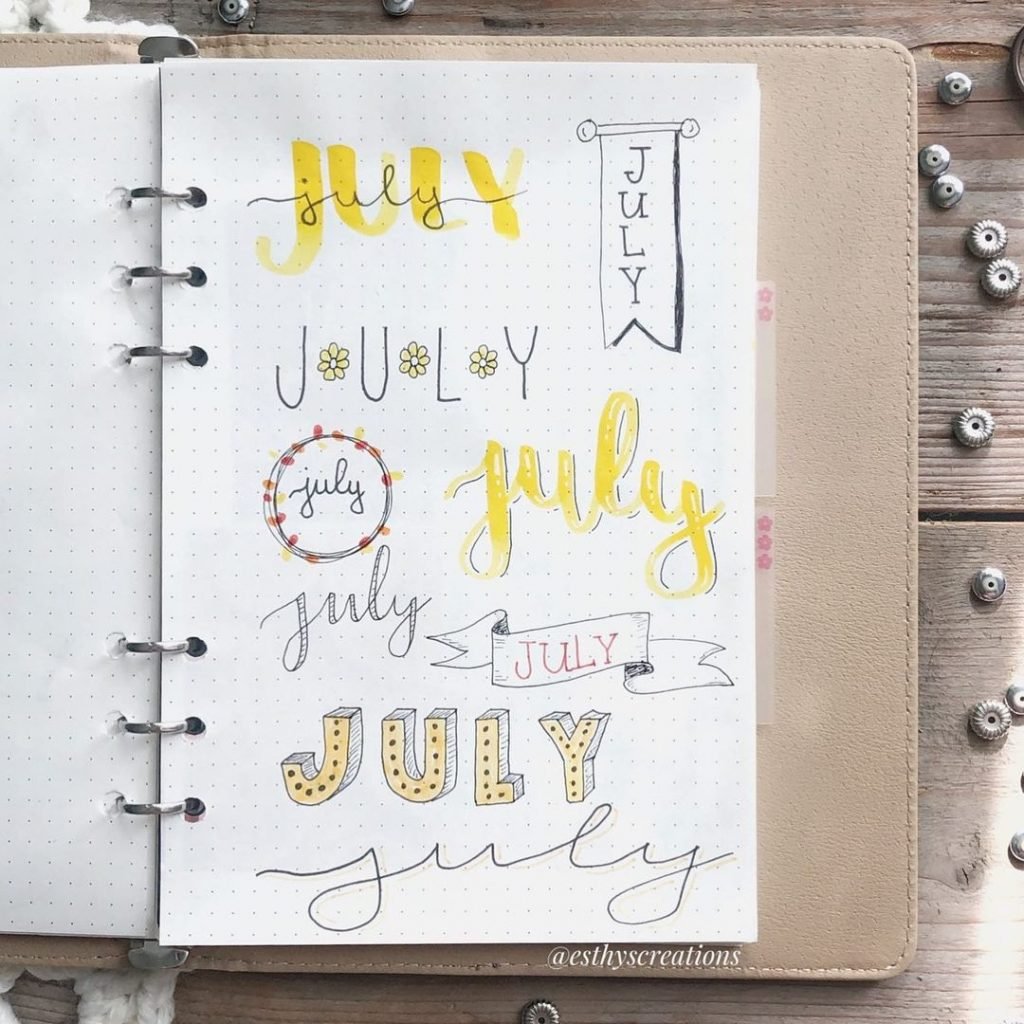 JULY
july
J
U
L
Y
JULY
july
july
july
JULY
JULY
july
@esthyscreations